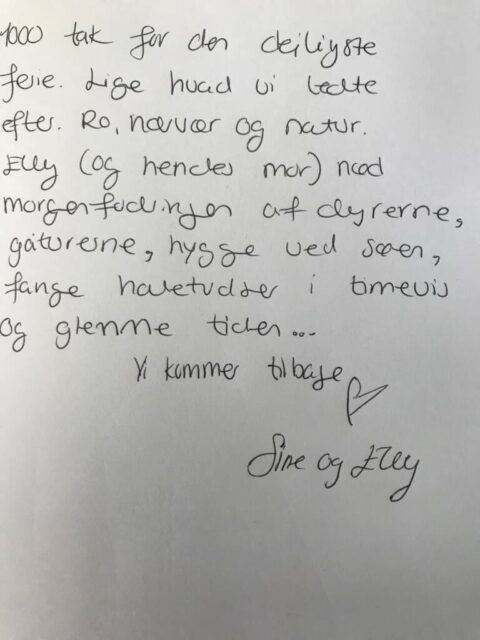 1000 tak for den dejligste
ferie. Lige hvad vi ledte
efter. Ro, nærvær og natur.
Elly (og hendes mor) nød
morgenfodringen af dyrerne,
gåturene, hygge ved søen,
fange haletudser i timevis
og glemme tiden...
Vi kommer tilbage
Sine og Elly